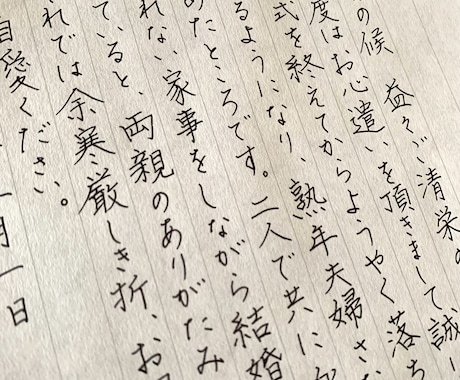 の候 益々ご清栄の
度はお心遣いを頂きまして誠
式を終えてからようやく落ち
るようになり、熟年夫婦さ
めたところです。二人で共に
れない家事をしながら結婚
ていると、両親のありがたみ
れでは余寒厳しき折、お
自愛ください。
月一日